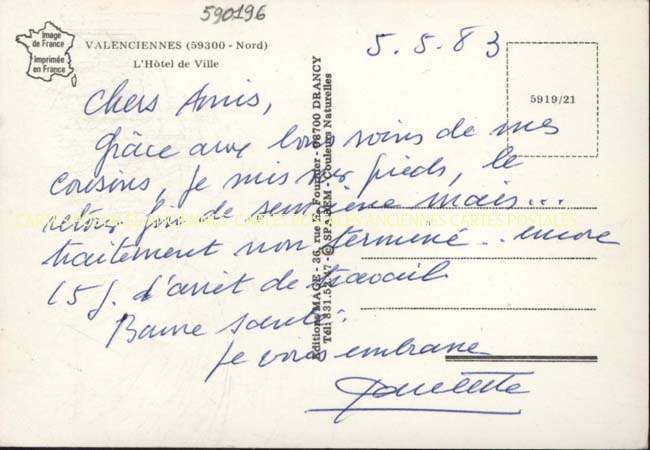 590196
Image
de France
Imprimée
en France
VALENCIENNES (59300 - Nord)
L'Hôtel de Ville
5.5.83
5919/21
Chers Amis,
Grâce aux bons soins de mes
cousins, je suis sur pieds, le
retour fin de semaine mais...
traitement non terminé.. encore
15 j. d'arrêt de travail
Bonne santé.
Je vous embrasse
Editions MAGE - 36, rue E. Fournier - 93700 DRANCY
Tél 831. - © SPADEM - Couleurs Naturelles
CARTES POSTALES ANCIENNES CARTES POSTALES ANCIENNES CARTES POSTALES